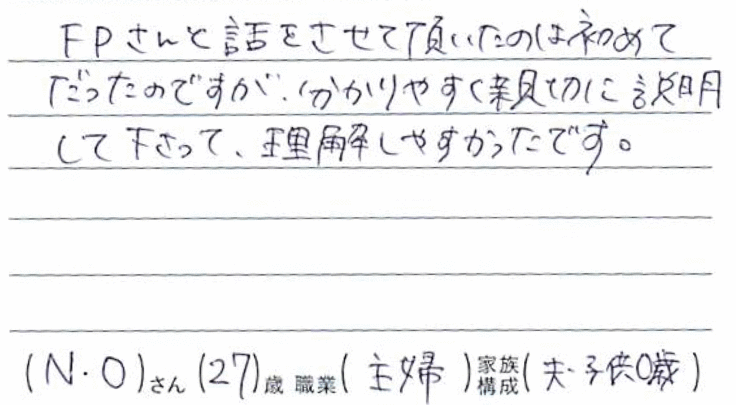 FPさんと話をさせて頂いたのは初めて
だったのですが、分かりやすく親切に説明
して下さって、理解しやすかったです。
(N・O)さん(27)歳 職業(主婦)家族構成(夫・子供0歳)